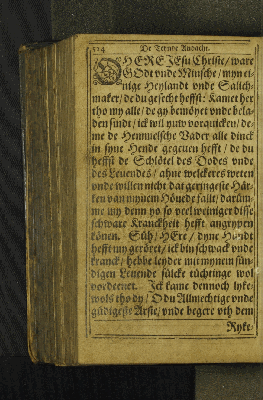 514 De Teynde Andacht.
HERE JEsu Christe / ware
GOdt vnde Minsche / myn ei-
nige Heylandt vnde Salich-
maker / de du gesecht heffst: Kamet her
tho my alle / de gy bemöyet vnde bela-
den sindt / ick wil yuw vorquicken / de-
me de Hemmelsche Vader alle dinck
in syne Hende gegeuen hefft / de du
heffst de Schlötel des Dodes vnde
des Leuendes / ahne welckeres weten
vnde willen nicht dat geringeste Här-
ken van mynem Höuede fallt / darüm-
me my denn yo so veel weiniger disse
schware Kranckheit hefft angrypen
können. Süh / HEre / dyne Handt
hefft my geröret / ick bin schwack vnde
kranck / hebbe leyder mit mynem sün-
digen Leuende sülcke tüchtinge wol
vordeenet. Ick kame dennoch lyke-
wols tho dy / O du Allmechtige vnde
güdigeste Arste / vnde begere vth dem
Ryke-